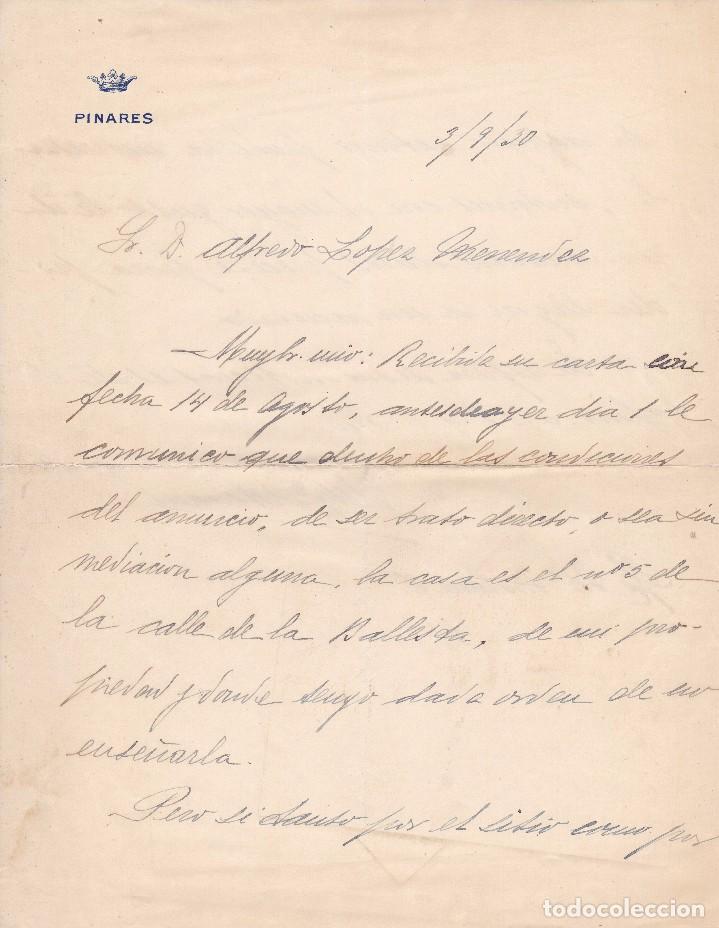 PINARES
3/9/30
Sr. D. Alfredo Lopez Menendez
Muy Sr. mio: Recibida su carta con
fecha 14 de Agosto, antesdeayer dia 1 le
comunico que dentro de las condiciones
del anuncio, de ser trato directo, o sea sin
mediación alguna, la casa es el nº 5 de
la calle de la Ballesta, de mi pro-
piedad y donde tengo dada orden de no
enseñarla.
Pero si tanto por el sitio como por
todocoleccion